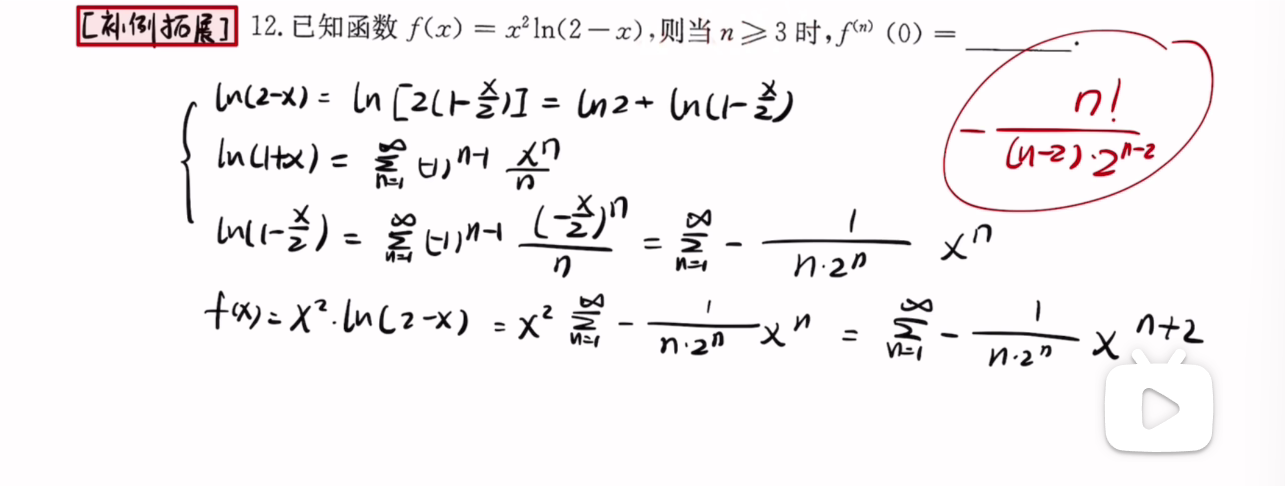 [补例拓展] 12. 已知函数 f(x) = x²ln(2-x),则当 n ≥ 3 时, f⁽ⁿ⁾(0) = ________.
ln(2-x) = ln[2(1-x/2)] = ln2 + ln(1-x/2)
- n!/((n-2)·2^(n-2))
ln(1+x) = ∑_{n=1}^{∞} (-1)^(n-1) x^n/n
ln(1-x/2) = ∑_{n=1}^{∞} (-1)^(n-1) (-x/2)^n/n = ∑_{n=1}^{∞} - 1/(n·2^n) x^n
f(x) = x²·ln(2-x) = x² ∑_{n=1}^{∞} - 1/(n·2^n) x^n = ∑_{n=1}^{∞} - 1/(n·2^n) x^(n+2)